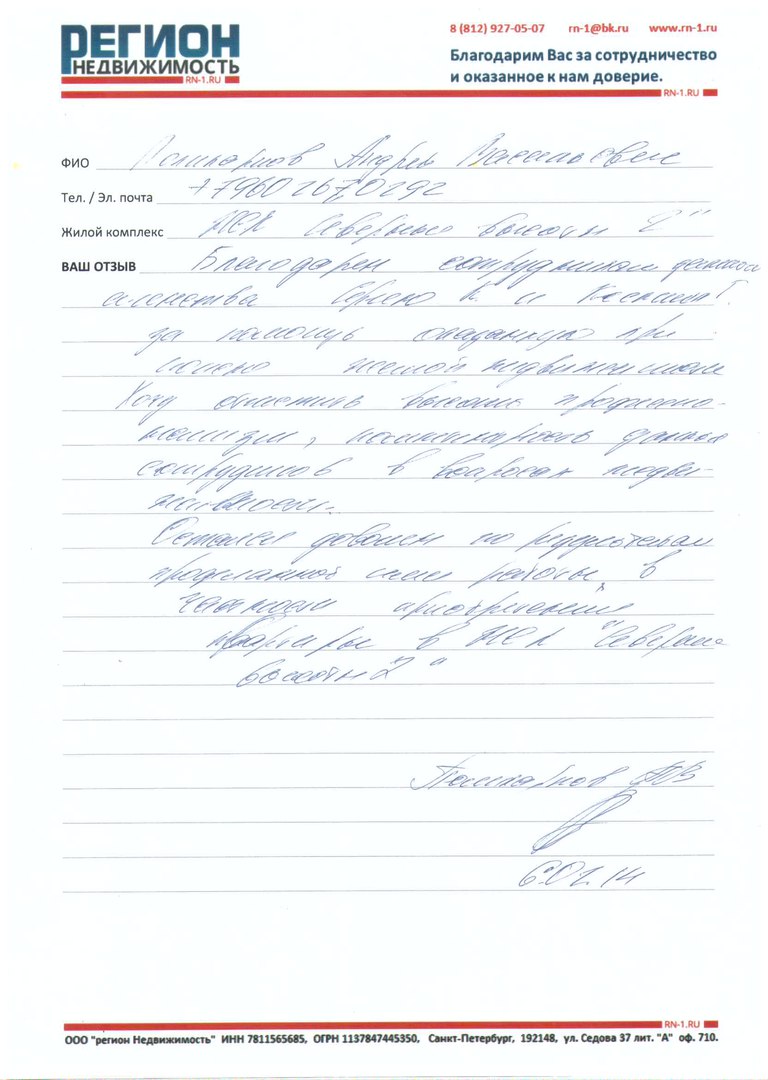 РЕГИОН
НЕДВИЖИМОСТЬ
RN-1.RU
8 (812) 927-05-07 rn-1@bk.ru www.rn-1.ru
Благодарим Вас за сотрудничество
и оказанное к нам доверие.
RN-1.RU
ФИО Поликарпов Андрей Васильевич
Тел. / Эл. почта +7960 267 0292
Жилой комплекс ЖСК Северные высоты 2"
ВАШ ОТЗЫВ Благодарен сотрудникам данного
агенства Сергею К. и Ксении Г.
за помощь оказанную при
жилой недвижимости
Хочу отметить высокий профессио-
нализм, данных
сотрудников в вопросах недви-
жимости.
Остался доволен по результатам
проделанной ими работы, в
частности приобретение
квартиры в ЖСК "Северные
высоты 2"
Поликарпов АВ
6.02.14
RN-1.RU
ООО "регион Недвижимость" ИНН 7811565685, ОГРН 1137847445350, Санкт-Петербург, 192148, ул. Седова 37 лит. "А" оф. 710.